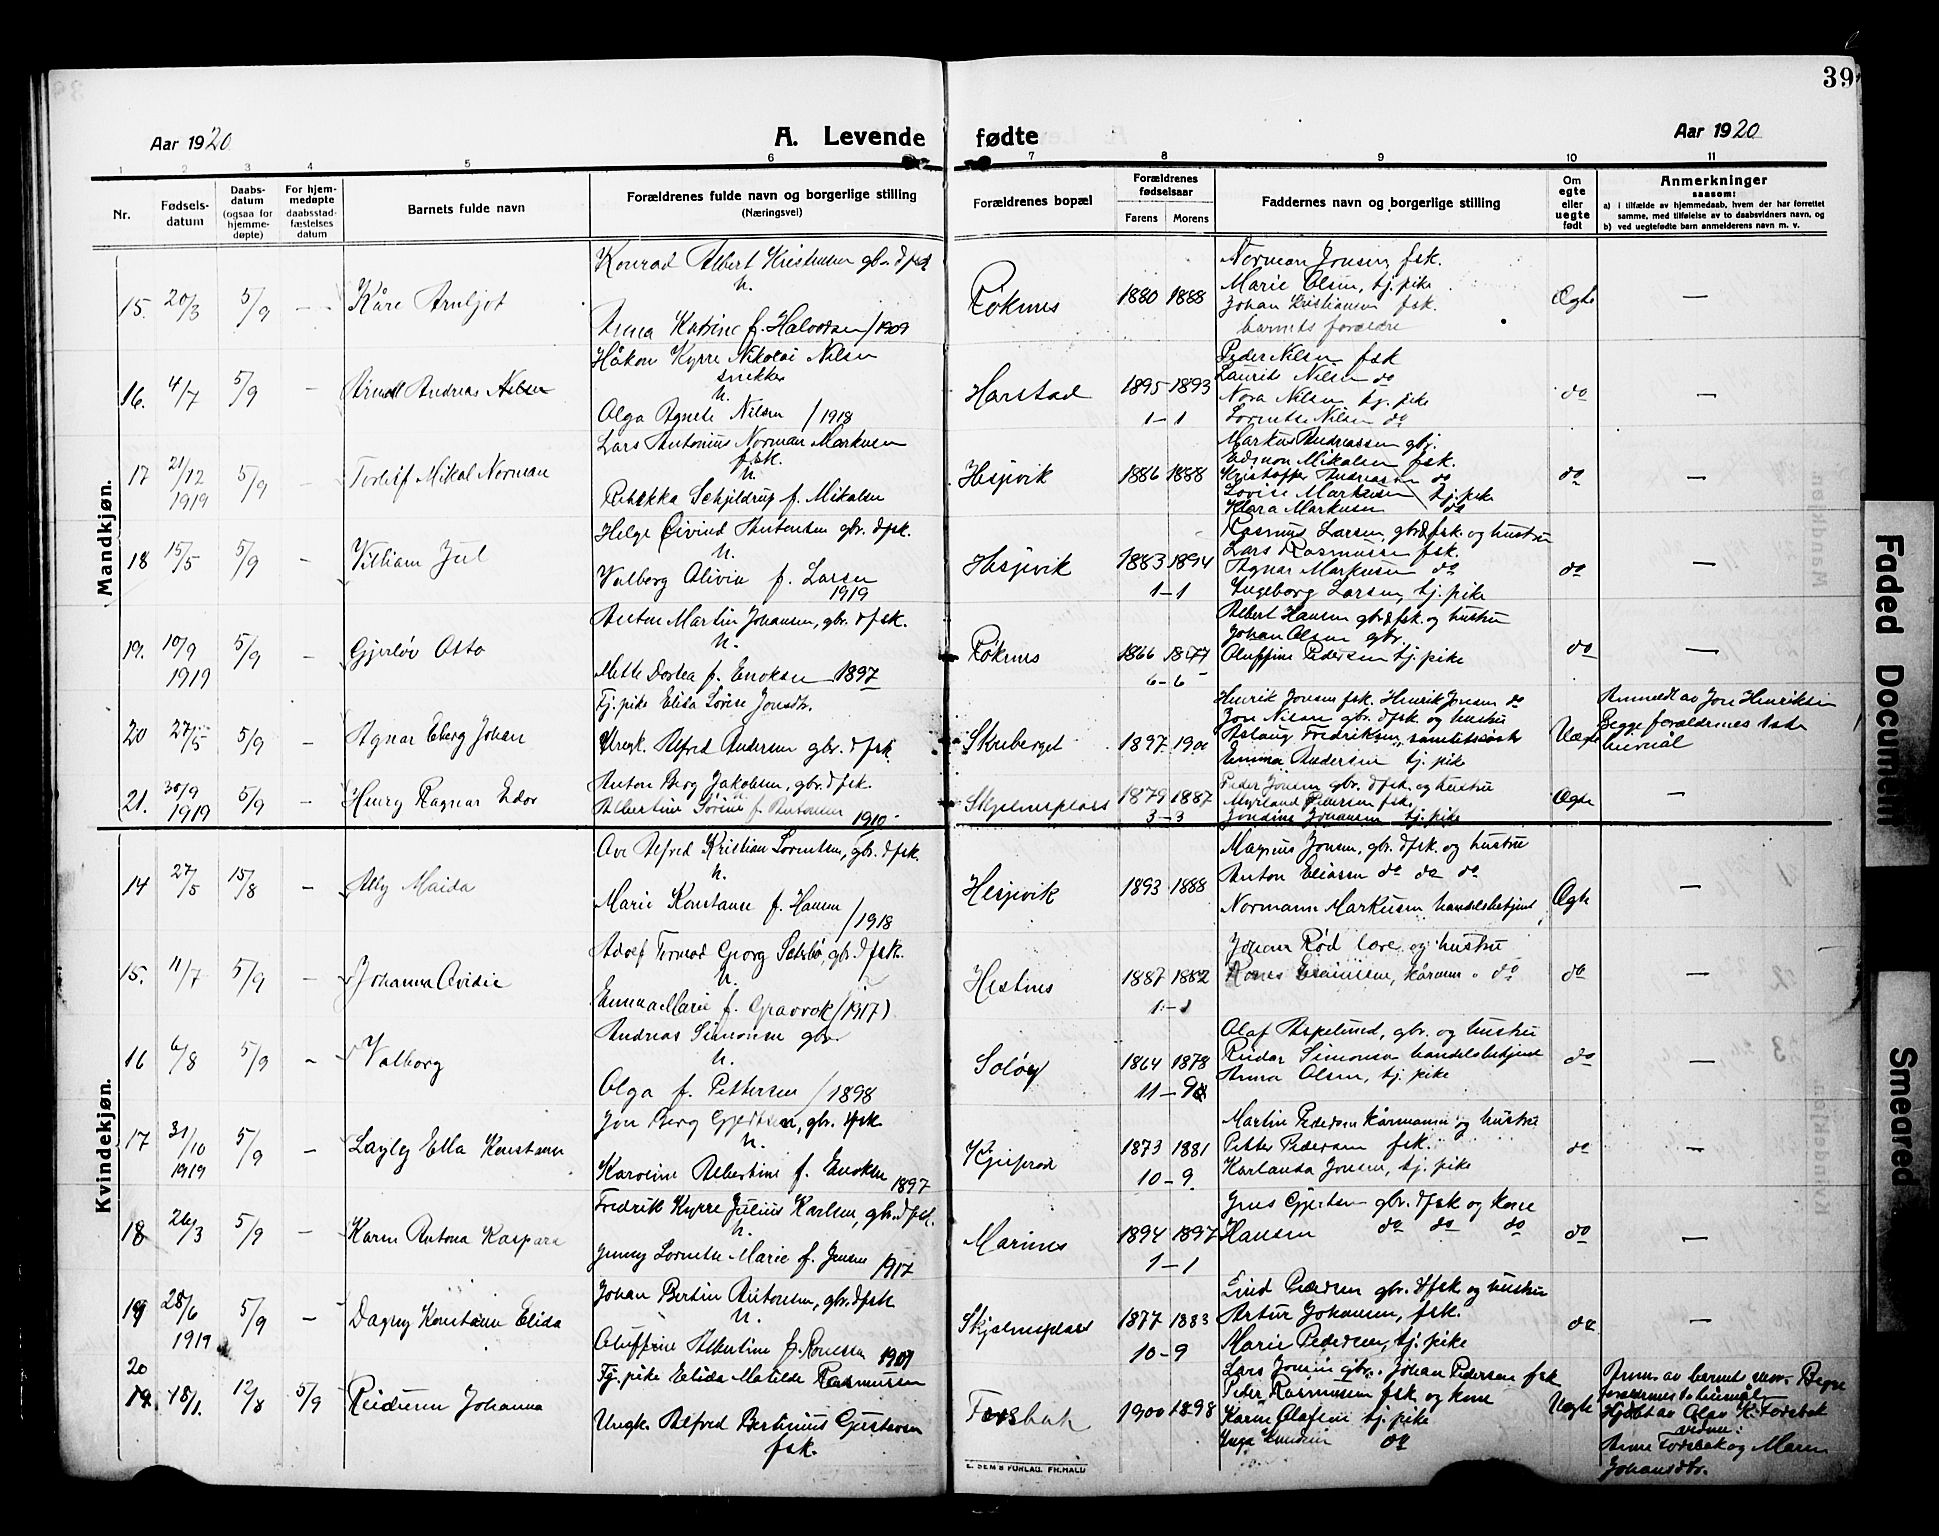 39
Aar 1920
A. Levende fødte
Aar 1920
1 2 3 4 5 6 7 8 9 10 11
Nr.
Fødsels-
datum
Daabs-
datum
(ogsaa for
hjemme-
døpte)
For hjem-
medøpte
daabsstad-
fæstelses
datum
Barnets fulde navn
Forældrenes fulde navn og borgerlige stilling
(Næringsvei)
Forældrenes bopæl
Forældrenes
fødselsaar
Farens Morens
Faddernes navn og borgerlige stilling
Om
egte
eller
uegte
født
Anmerkninger
saasom:
a) i tilfælde av hjemmedaab, hvem der har forrettet
samme, med tilføielse av to daabsvidners navn, og
b) ved uegtefødte barn anmelderens navn m. v.
Mandkjøn.
Konrad Albert Kristensen gbr. & fsk
h.
15. 20/3 5/9 — Kåre Arnljot
Anna Katrine f. Halvorsen / 1909
Røknes 1880 1888
Norman Jensen, fsk.
Marie Olsen, tj. pike
Johan Kristiansen fsk.
barnets forældre
Øgte —
Håkon Kyrre Nikolai Nilsen
snekker
h.
16. 4/7 5/9 — Andreas Nilsen
Olga Agnete Nilsen / 1918
Harstad 1895 1893
1 – 1
Peder Nilsen fsk
Laurits Nilsen do
Nora Nilsen tj. pike
Lornetse Nilsen do
do —
Lars Antonius Norman Markusen
fsk.
h.
17 21/12 1919 5/9 — Torleif Mikal Norman
Rebekka Schjeldrup f. Mikalsen
Hesjevik 1886 1888
Markus Andreassen gbr.
Edmon Mikalsen fsk.
Kristoffer Andreassen do
Lovise Markusen tj. pike
Klara Markusen do
do —
Helge Eivind Antonsen gbr. & fsk.
h.
18 15/5 5/9 — William Jul
Valborg Olivia f. Larsen
1919
Hesjevik 1883 1894
1 – 1
Rasmus Larsen, gbr & fsk. og hustru
Lars Rasmussen fsk.
Agnar Markusen do
Ingeborg Larsen, tj. pike
do —
Anton Martin Johansen, gbr. & fsk.
h.
19. 10/9 1919 5/9 — Gjerløv Otto
Mette Dortea f. Enoksen 1897
Røknes 1866 1877
6 – 6
Albert Hansen gbr & fsk. og hustru
Johan Olsen gbr.
Oluffine Pedersen tj. pike
do —
Tj. pike Elida Lovise Jonsdtr.
20 27/5 5/9 — Agnar Eberg Johan
Ungk. Alfred Andersen gbr. & fsk.
Skruberget 1897 1900
Henrik Jensen fsk. Henrik Jensen do
Jon Nilsen gbr. & fsk og hustru
Aslaug Fredriksen,
Emma Andersen tj. pike
Uægte
Anmeldt av Jon Henriksen
Begge forældrenes 1ste
leiermål
21. 30/9 1919 5/9 — Henry Ragnar Edor
Anton Berg Jakobsen, gbr. & fsk.
Albertine Sørine f. Antonsen 1910
Skjelmesplass 1879 1887
3 – 3
Peder Jonsen gbr. & fsk. og hustru
Myrland Pedersen fsk.
Jondine Johansen tj. pike
Øgte —
Kvindekjøn.
Ove Alfred Kristian Lorentsen, gbr. & fsk.
h.
14 27/5 15/8 — Ally Maida
Marie Konstanse f. Hansen / 1918
Hesjevik 1893 1888
Magnus Jensen, gbr. & fsk. og hustru
Anton Eliassen do do do
Normann Markusen handelsbetjent
Øgte —
Adolf Tormod Georg Sætebø, gbr. & fsk.
h.
15. 11/7 5/9 — Johanna Ovidie
Emma Marie f. Graavrok / 1917)
Hestnes 1887 1882
1 – 1
Johan Rød lære. og hustru
do —
Andreas Simonsen gbr
h.
16 6/8 5/9 — Valborg
Olga f. Pettersen / 1898
Soløy 1864 1878
11 – 9
Olaf Aspelund, gbr. og hustru
Reidar Simonsen handelsbetjent
Anna Olsen, tj. pike
do —
Jon Berg Gjertsen, gbr. & fsk.
h.
17 31/10 1919 5/9 — Layley Ella Konstanse
Karoline Albertine f. Enoksen 1897
1873 1881
10 – 9
Martin Pedersen kårmann og hustru
Petter Pedersen fsk.
Karlanda Jonsen, tj. pike
do —
Fredrik Kyrre Julius Karlsen, gbr. & fsk.
h.
18 26/3 5/9 — Karen Antona Kaspara
Jenny Lornetse Marie f. Jensen 1917
Marines 1894 1897
1 – 1
Jens Gjertsen gbr. & fsk og kone
Hansen do do do
do —
Johan Bertin Antonsen, gbr. & fsk
h.
19 28/6 1919 5/9 — Dagny Konstanse Elida
Oluffine Albertine f. 1907
Skjelmesplass 1877 1883
10 – 9
Pedersen gbr. & fsk og hustru
Artur Johansen, fsk.
Marie Pedersen, tj. pike
do —
20
19. 18/1. 12/8 5/9 Reidunn Johanna
Tj. pike Elida Matilde Rasmussen
Ungk. Alfred Bertinius Gustavsen
fsk.
Forsbak 1900 1898
Lars Jonsen gbr. Johan Pedersen fsk
Peder Rasmussen fsk og kone
Karen Olafsen tj. pike
Inga Knudsen do
Uægte
Anm. av barnets mor. Begge
forældrenes 1ste leiermål
Hjdøpt av Olav K. Forsbak
vidne:
Anne Forsbak og Maren
Johansdtr.
E. SEM'S FORLAG, FR.HALD
Faded Document
Smeared